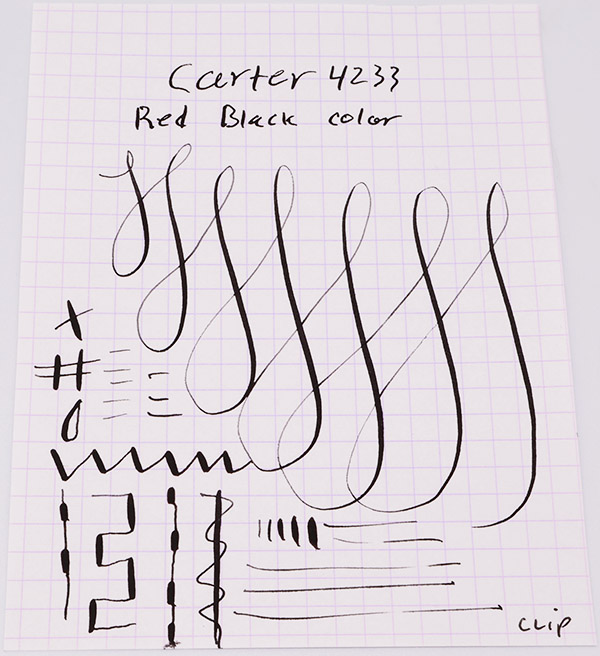 Carter 4233
Red Black color
CLIP